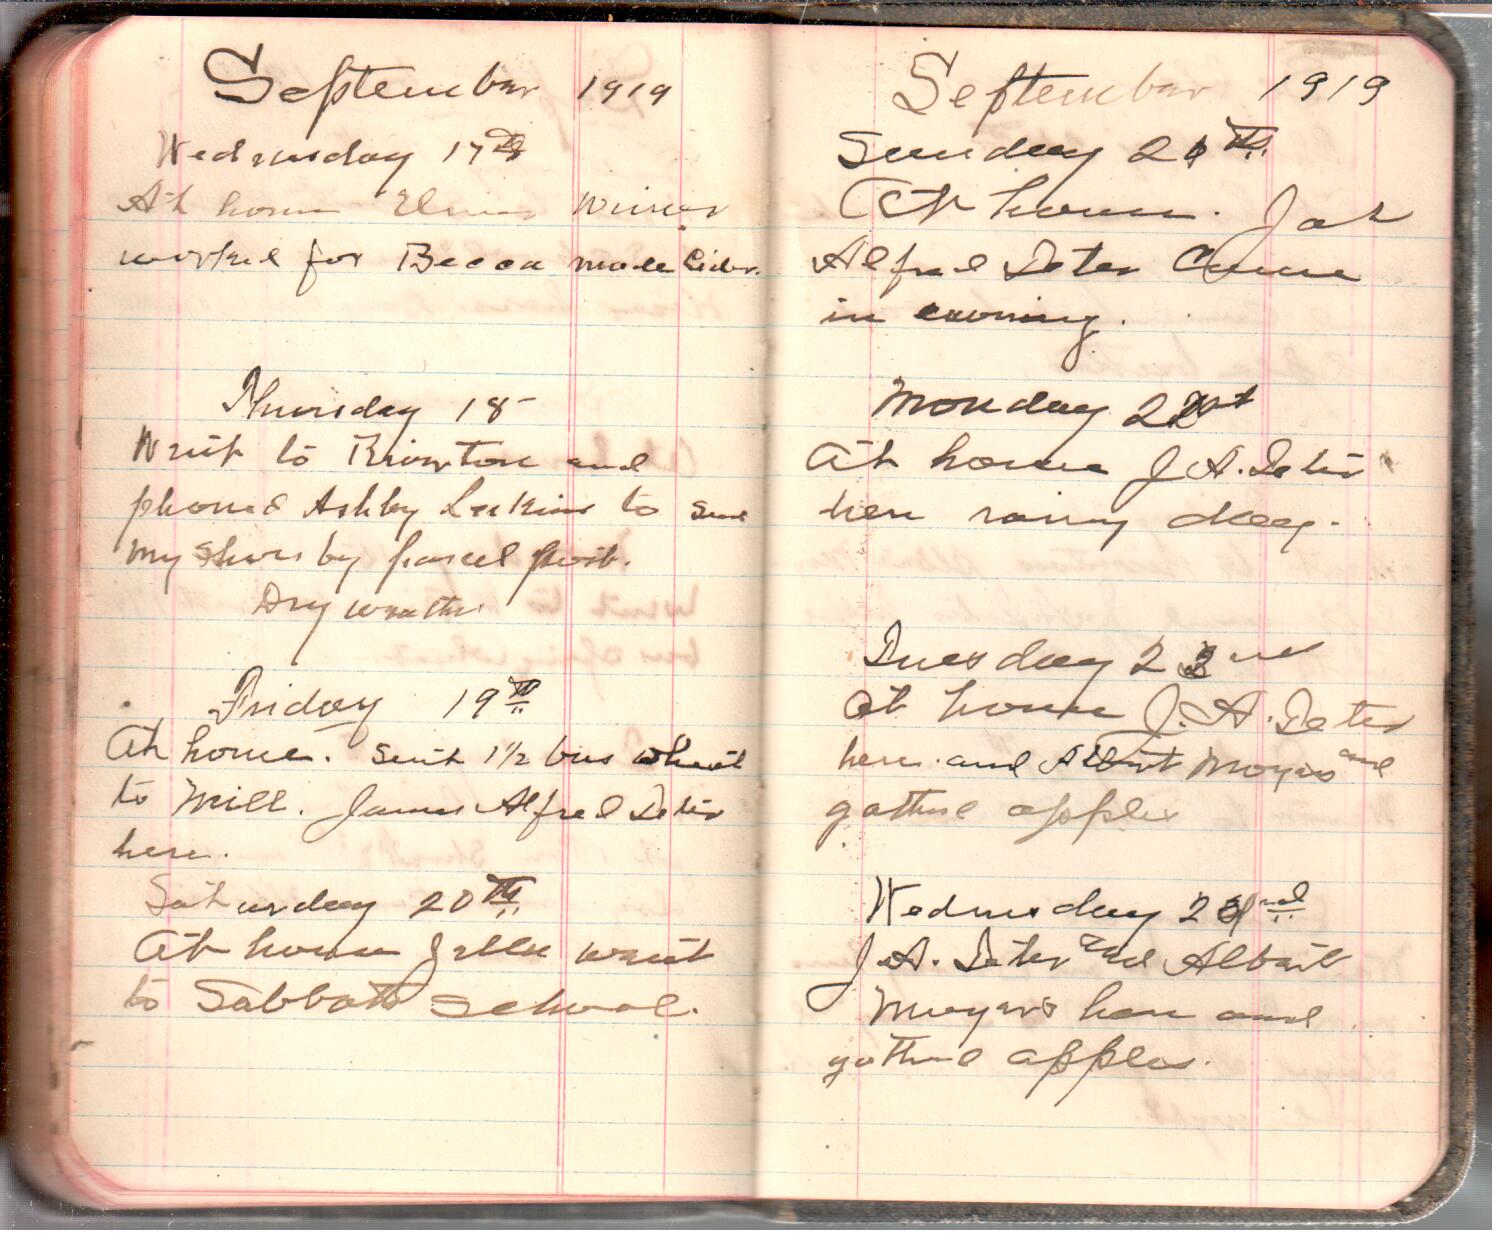 September 1919
Wednesday 17th
At home Elmer Wisner
worked for Becca made Cider.
Thursday 18
Went to Brixton and
phoned Ashby Leskins to send
my shoes by parcel post.
Dry weather
Friday 19th
At home. sent 1 1/2 bus wheat
to Mill. James Alfred Deter
here.
Saturday 20th
At home Zella went
to Sabbath School.
September 1919
Sunday 21th
At home. Jas
Alfred Deter Came
in evening.
Monday 22st
At home J A. Deter
here rainy day.
Tuesday 23nd
At home J. A. Deter
here. and Albert Moyers and
gathred apples
Wednesday 24nd
J. A. Deter and Albert
Moyers here and
gathred apples.